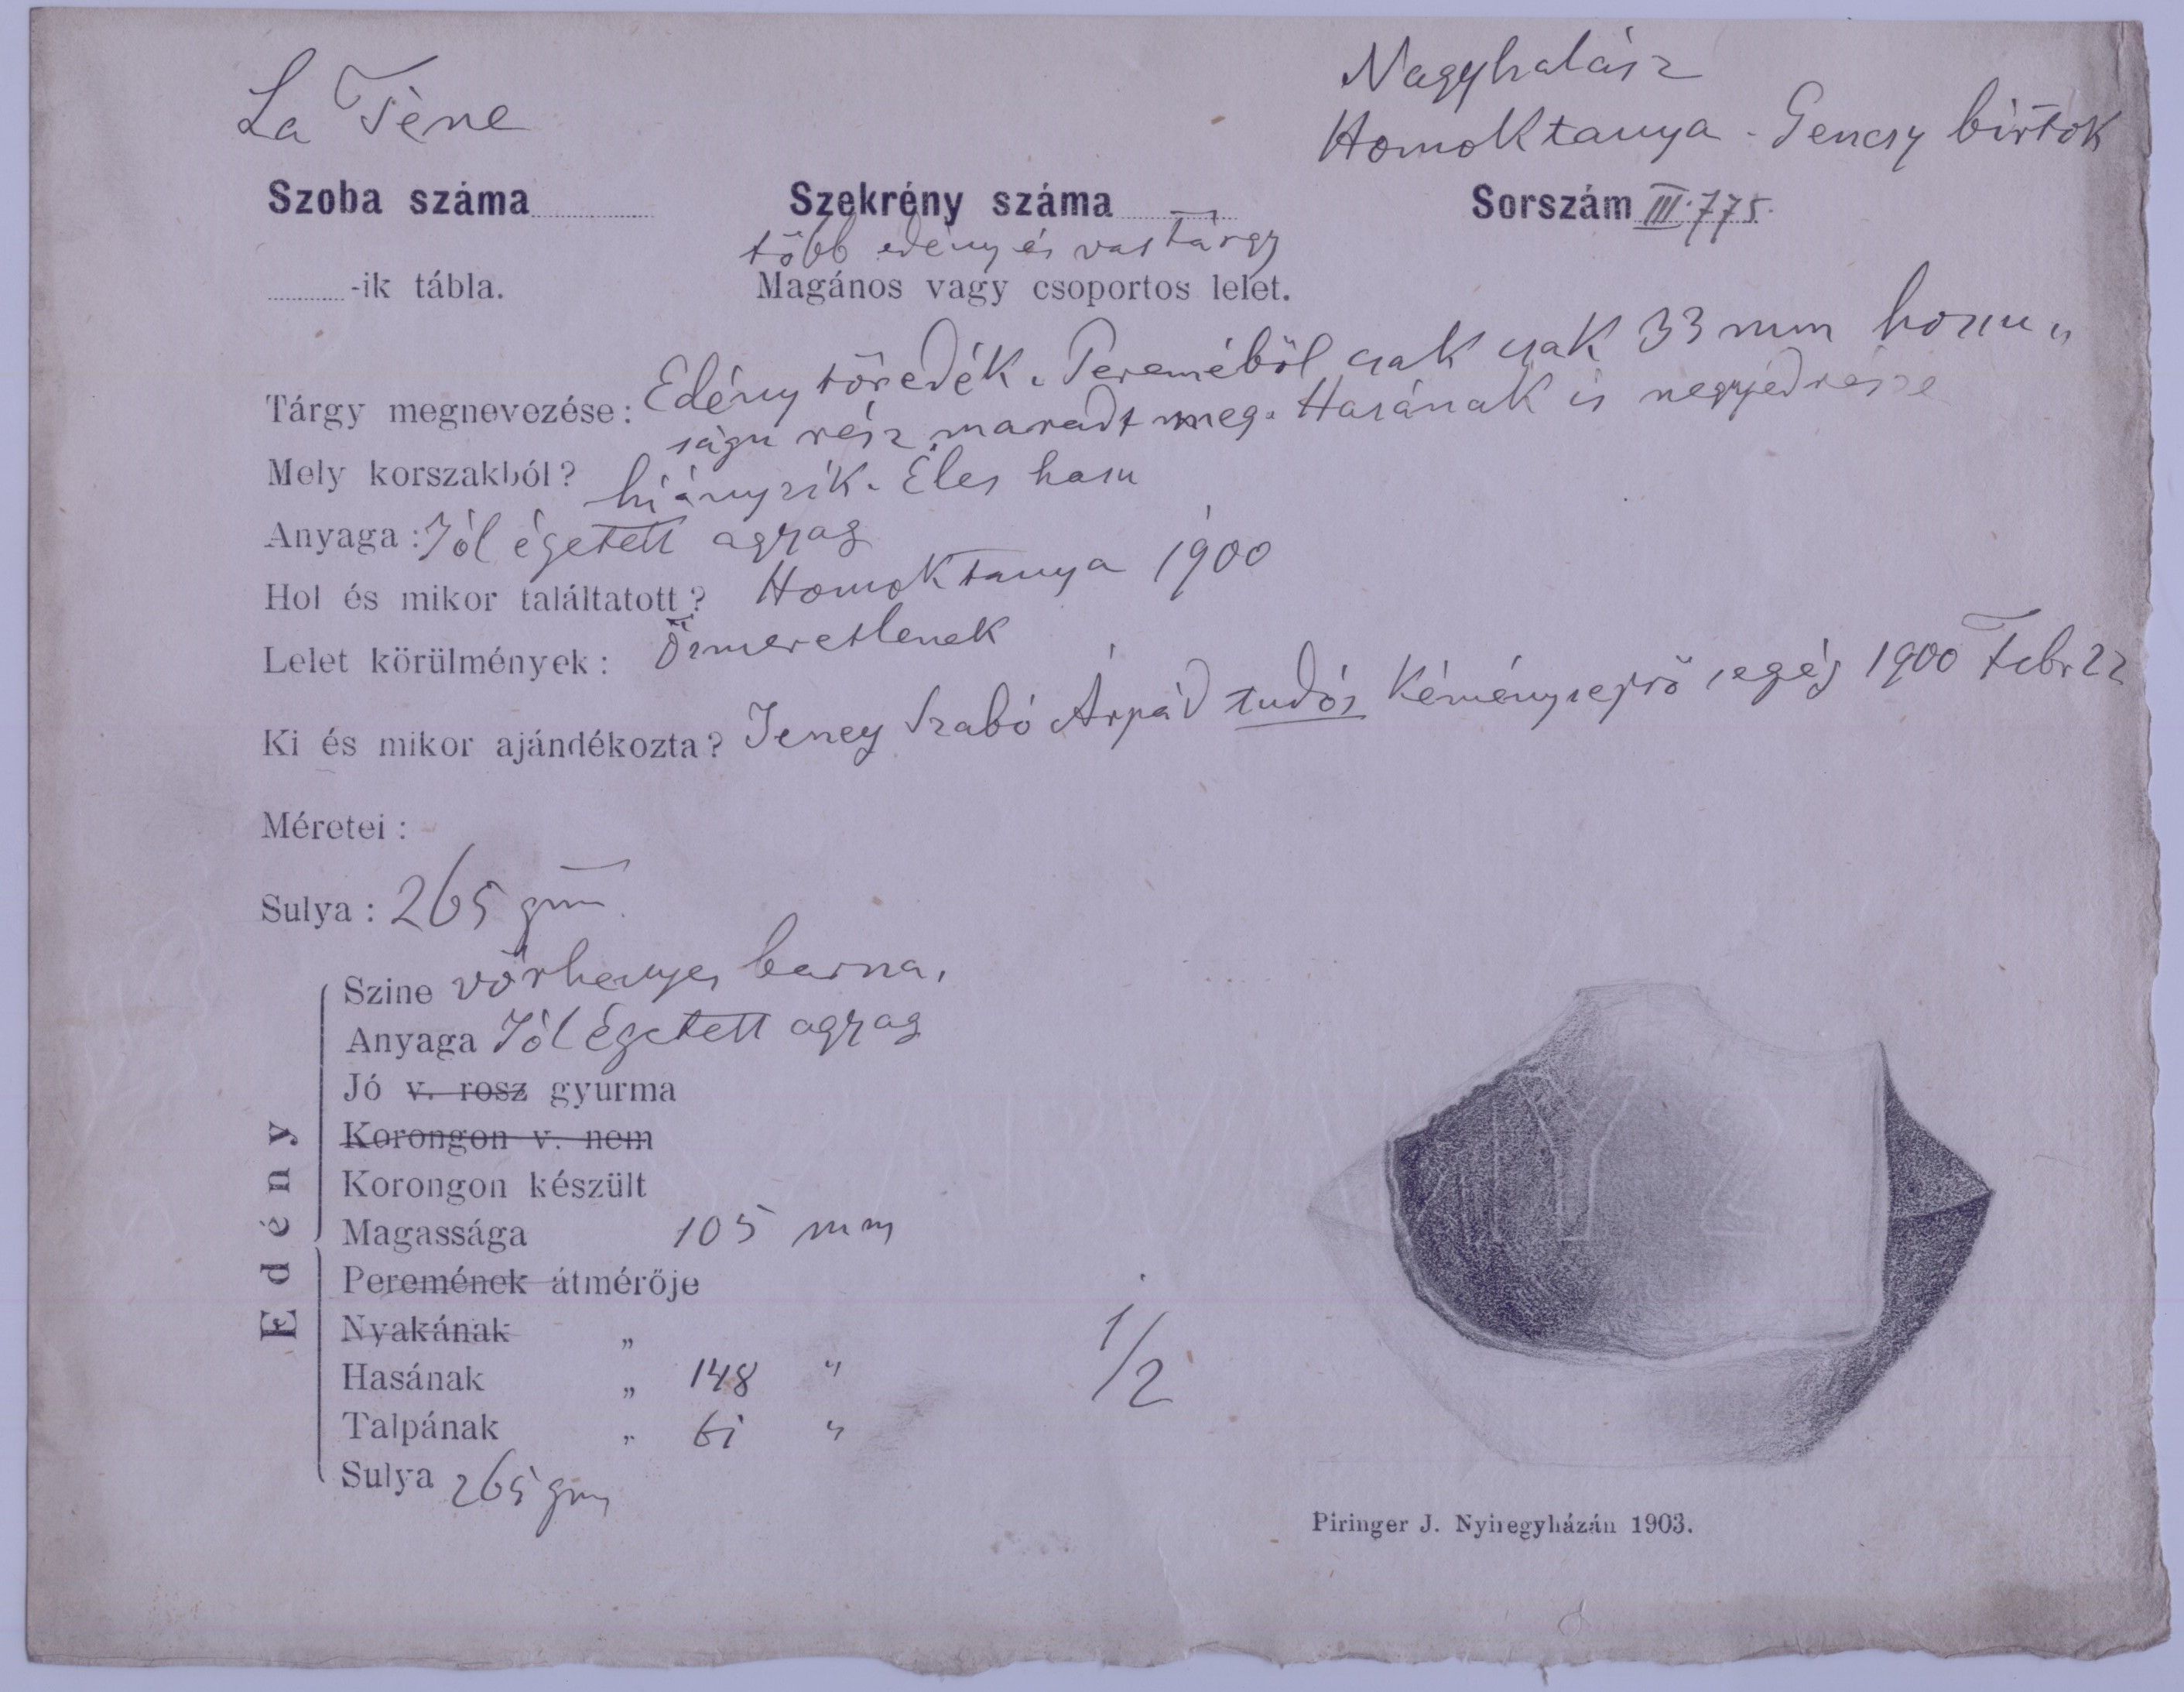 La Tène
Nagyhalász
Homoktanya - Gencsy birtok
Szoba száma
Szekrény száma
Sorszám III. 775.
több edény és vastárgy
-ik tábla.
Magános vagy csoportos lelet.
Tárgy megnevezése: Edény töredék. Pereméből csak csak 33 mm hosszu
ságu rész maradt meg. Hasának is negyedrésze
Mely korszakból? hiányzik. Éles hasu
Anyaga: Jól égetett agyag
Hol és mikor találtatott? Homoktanya 1900
Lelet körülmények: Ismeretlenek
Ki és mikor ajándékozta? Jeney Szabó Árpád tudós Kéményseprő segéd 1900 Febr 22
Méretei:
Sulya: 265 gm
Edény
Szine vörhenyes barna,
Anyaga Jól égetett agyag
Jó v. rosz gyurma
Korongon v. nem
Korongon készült
Magassága 105 mm
Peremének átmérője
Nyakának „
Hasának „ 148 "
Talpának „ 61 "
Sulya 265 gm
1/2
Piringer J. Nyiregyházán 1903.